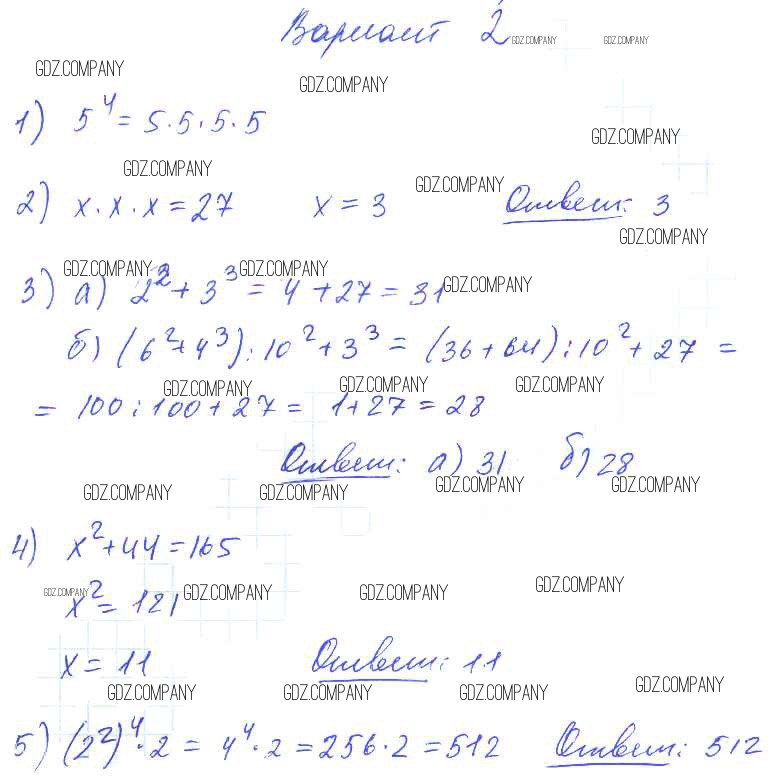 Вариант 2
GDZ.COMPANY GDZ.COMPANY
GDZ.COMPANY GDZ.COMPANY
1) 5⁴ = 5·5·5·5
GDZ.COMPANY
GDZ.COMPANY GDZ.COMPANY
2) x·x·x = 27 x = 3 Ответ: 3
GDZ.COMPANY
GDZ.COMPANY GDZ.COMPANY GDZ.COMPANY
3) а) 2² + 3³ = 4 + 27 = 31
б) (6² + 4³) : 10² + 3³ = (36 + 64) : 10² + 27 =
GDZ.COMPANY GDZ.COMPANY GDZ.COMPANY
= 100 : 100 + 27 = 1 + 27 = 28
Ответ: а) 31 б) 28
GDZ.COMPANY GDZ.COMPANY GDZ.COMPANY GDZ.COMPANY
4) x² + 44 = 165
GDZ.COMPANY GDZ.COMPANY GDZ.COMPANY GDZ.COMPANY
x² = 121
x = 11 Ответ: 11
GDZ.COMPANY GDZ.COMPANY GDZ.COMPANY GDZ.COMPANY
5) (2²)⁴·2 = 4⁴·2 = 256·2 = 512 Ответ: 512